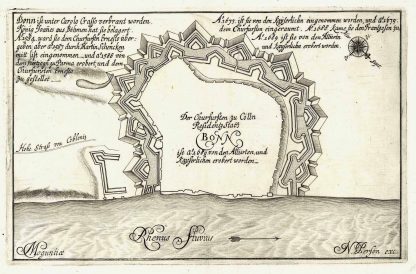 Bonn ist unter Carolo Crasso verbrant worden.
König Joanes aus Böhmen hat sie belagert
A. 1584. ward sie dem Churfürsten Ernesto über-
geben aber 1587 durch Martin Schencken
mit list eingenommen und 1588 von
dem Hertzogen zu Parma erobert und dem
Churfürsten Ernesto
zu gestellet
A. 1673. ist sie von den Kayserlichen eingenommen worden, und A. 1679.
dem Churfürsten eingeraumt. A. 1688 kame sie den Frantzosen zu
A. 1689 ist sie von den Alliirten
und Kayserlichen erobert worden.
Der Churfürsten zu Cölln
Residentz Statt
BONN
ist A. 1689 von den Alliirten, und
Kayserlichen erobert worden.
Hohe Straß von Coblentz
Rhenus Fluvius
Moguntiæ
N. Person exc.